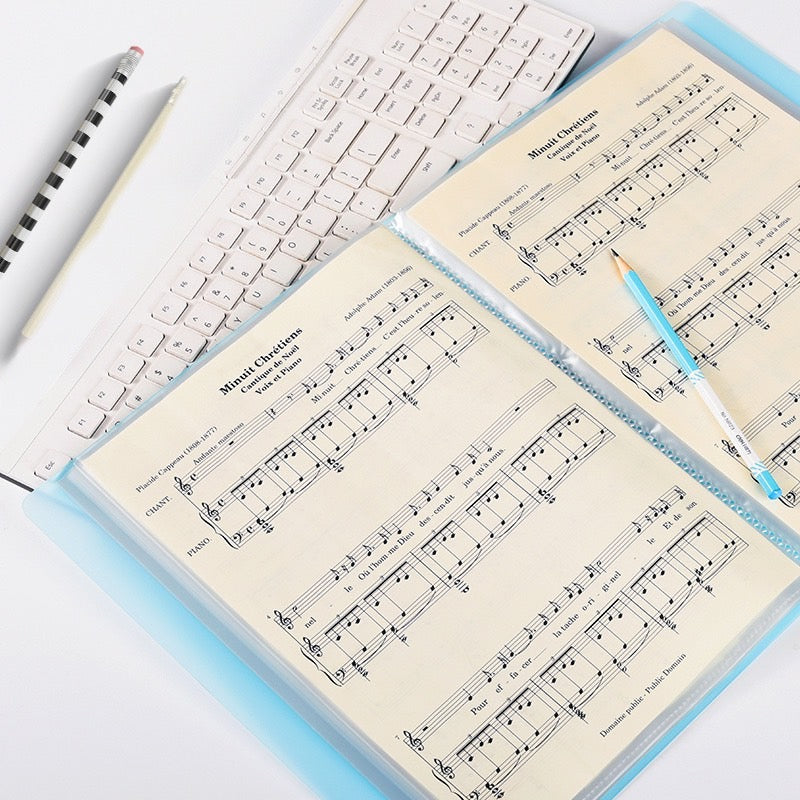 Minuit Chrétiens
Cantique de Noël
Voix et Piano
Adolphe Adam (1803-1856)
Placide Cappeau (1808-1877)
Andante maestoso
CHANT.
Mi nuit Chré tiens C'est l'heu re so len-
PIANO
4
nel le Où l'hom-me Dieu des cen dit jus qu'à nous
7
Pour ef - fa cer la tache o-ri - gi nel le Et de son
Domaine public - Public Domain
Minuit Chrétiens
Cantique de Noël
Voix et Piano
Adolphe Adam (1803-1856)
Placide Cappeau (1808-1877)
Andante maestoso
CHANT
Mi nuit Chré tiens C'est l'heu re so len-
PIANO
nel le Où l'hom-me Dieu des cen dit jus qu'à nous
Pour
Esc
F1
F2
F3
F4
F5
F6
F7
F8
F9
F10
F11
F12
Prt Sc
SysRq
Scroll
Lock
Pause
Break
Back Space
Insert
Home
PgUp
Delete
End
PgDn
Enter
Shift
Enter